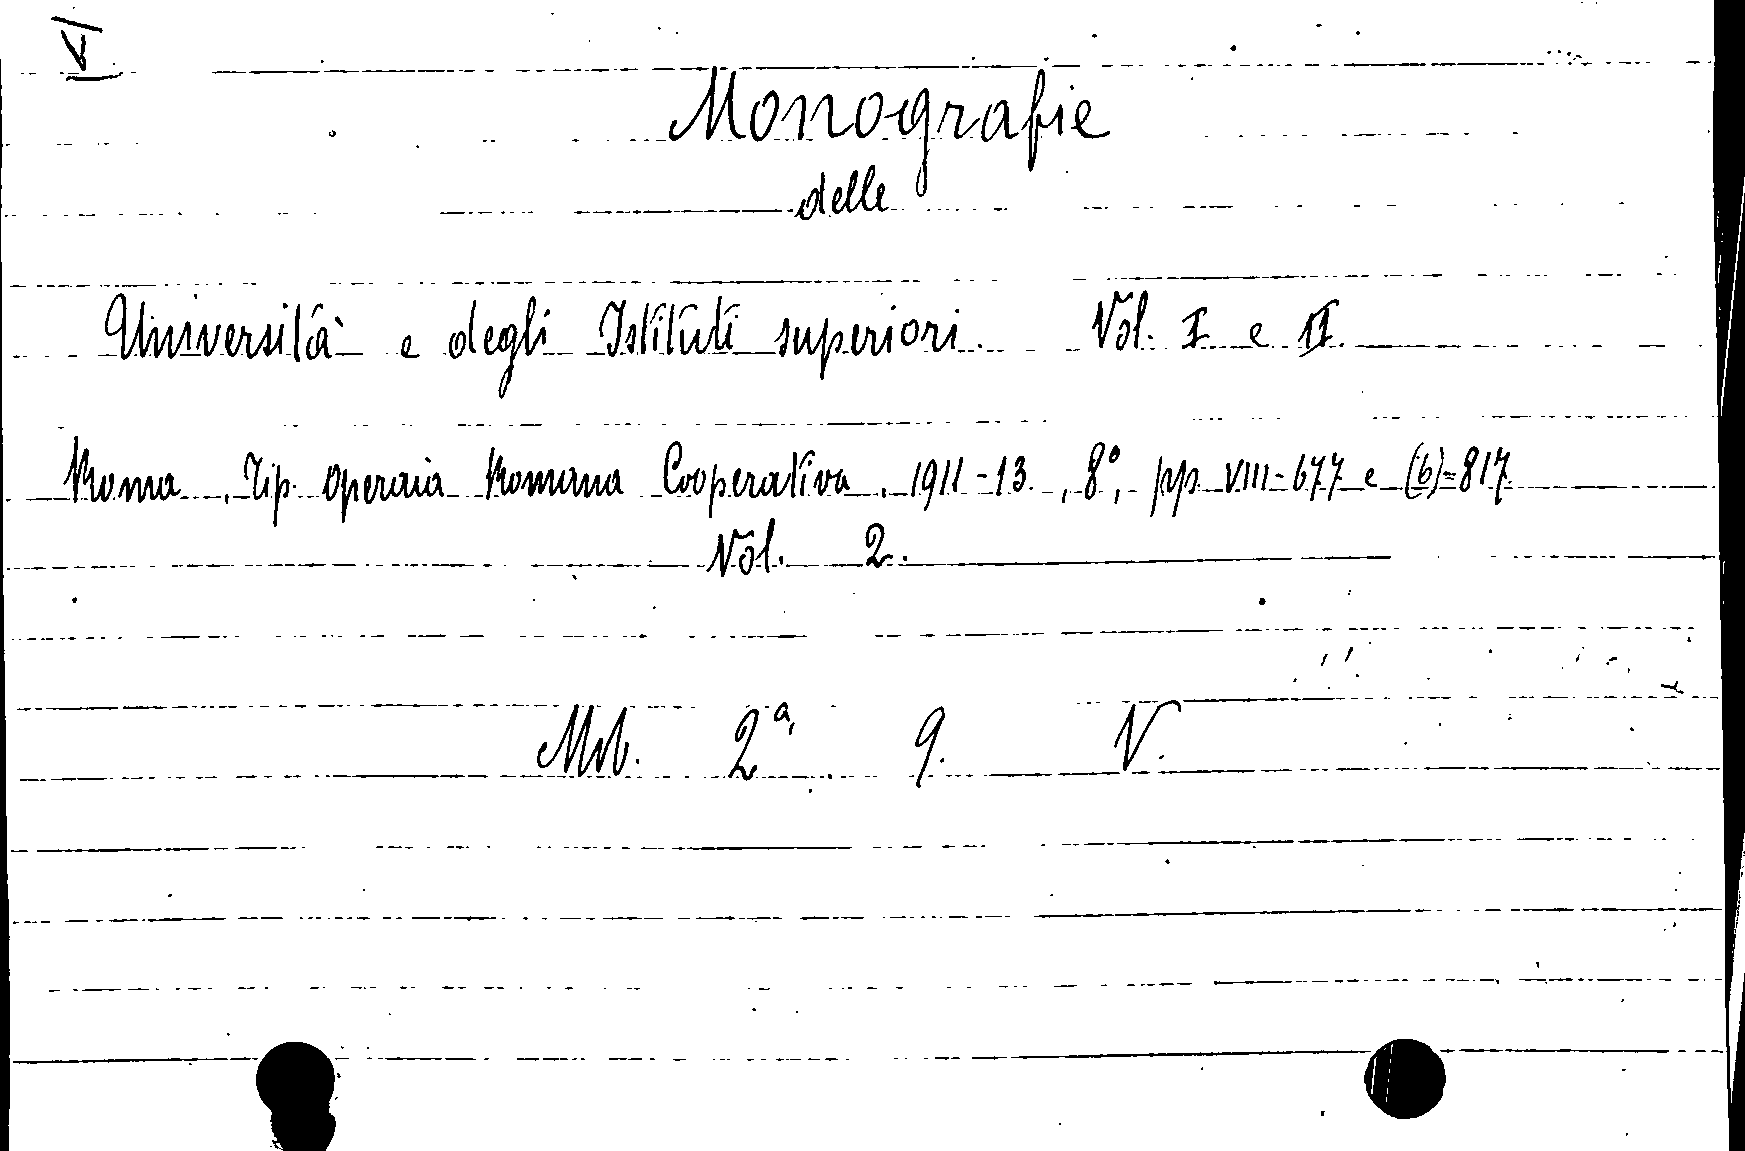 V
Monografie
delle
Università e degli Istituti superiori. Vol. I e II.
Roma, Tip. Operaia Romana Cooperativa, 1911-13, 8°, pp. VIII-677 e (6)=817
Vol. 2.
2ª 9. V.